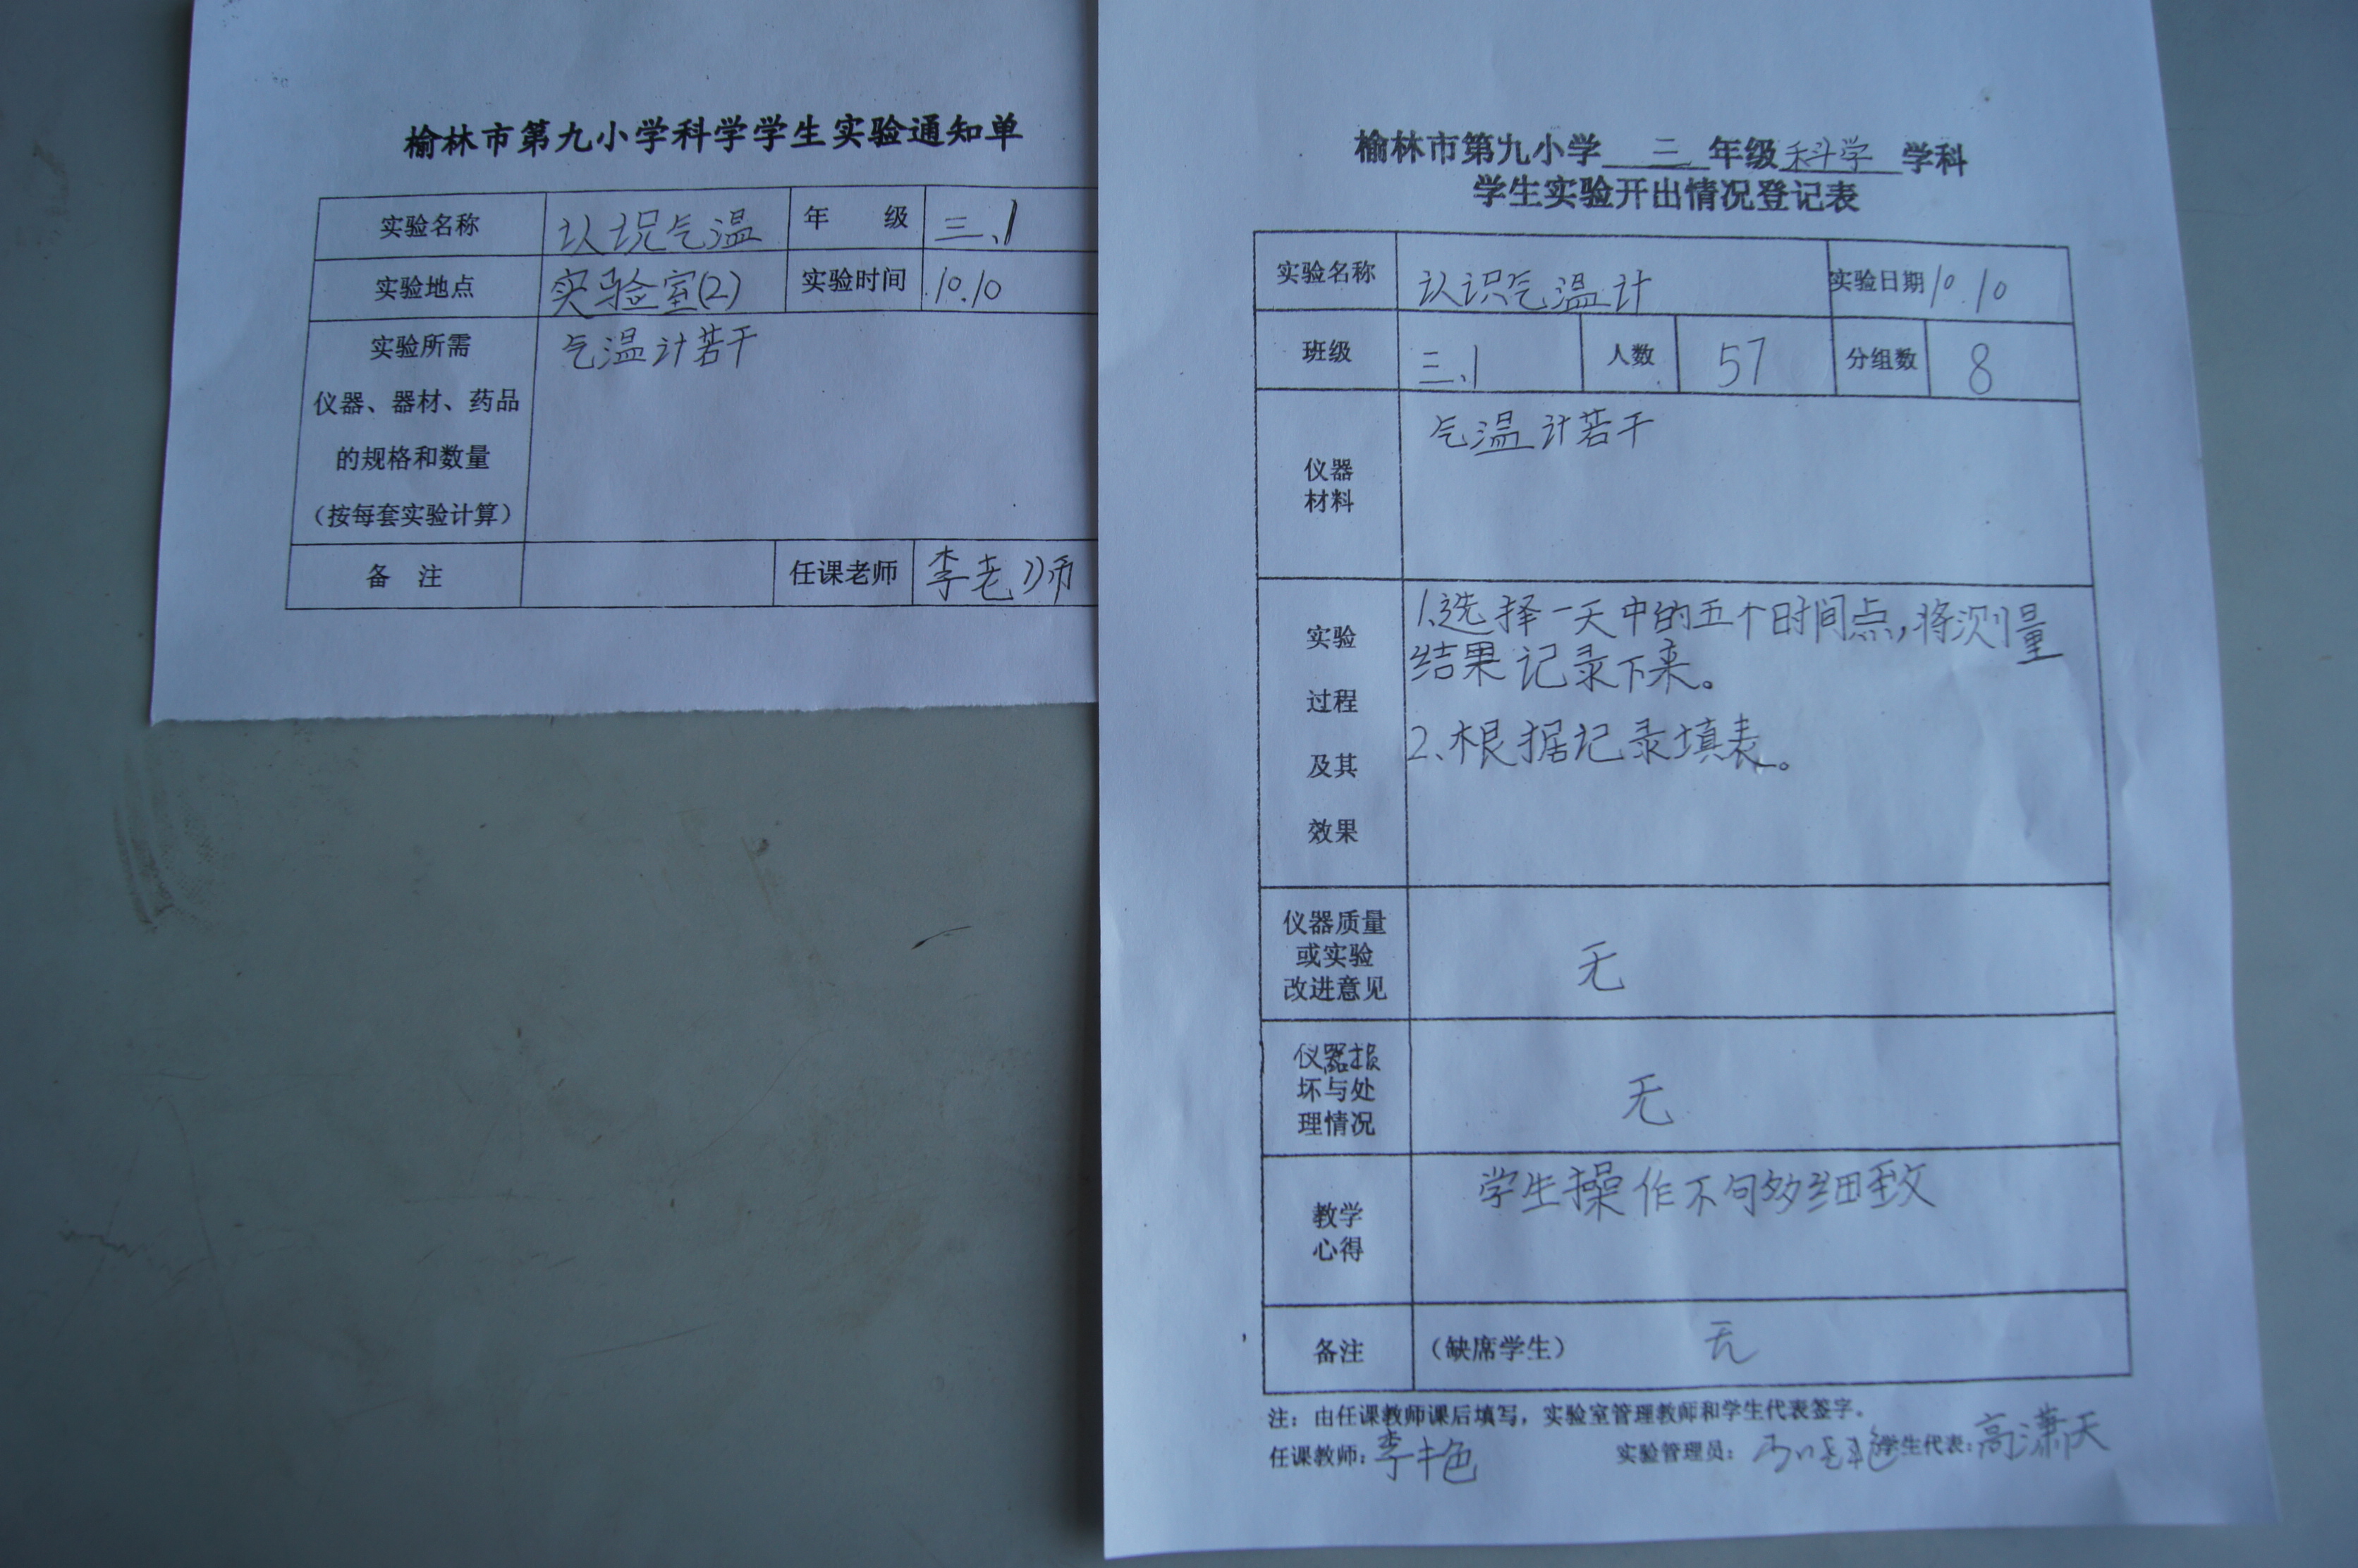 榆林市第九小学科学学生实验通知单
实验名称 认识气温 年 级 三、1
实验地点 实验室(2) 实验时间 10.10
实验所需 气温计若干
仪器、器材、药品
的规格和数量
（按每套实验计算）
备 注 任课老师 李老师
榆林市第九小学 三 年级 科学 学科
学生实验开出情况登记表
实验名称 认识气温计 实验日期 10.10
班级 三、1 人数 57 分组数 8
气温计若干
仪器
材料
1、选择一天中的五个时间点，将测量
结果记录下来。
2、根据记录填表。
实验
过程
及其
效果
仪器质量
或实验
改进意见
无
仪器损
坏与处
理情况
无
学生操作不够细致
教学
心得
备注 （缺席学生） 无
注：由任课教师课后填写，实验室管理教师和学生代表签字。
任课教师：李艳 实验管理员： 学生代表：高潇天